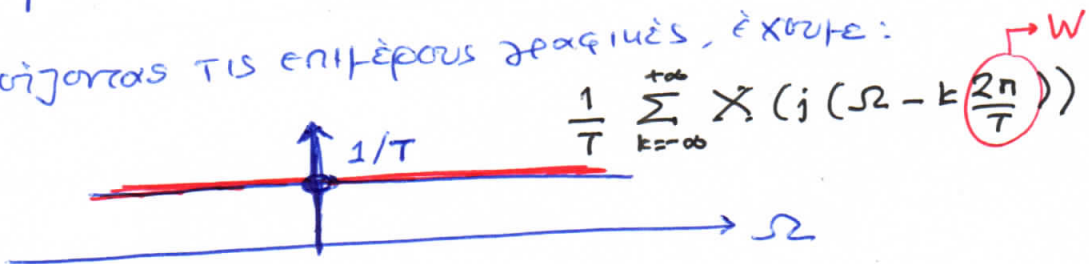 τις επιμέρους γραφικές, έχουμε:
→ W
1/T +∞ Σ k=-∞ X (j (Ω - k 2π/T))
1/T
Ω